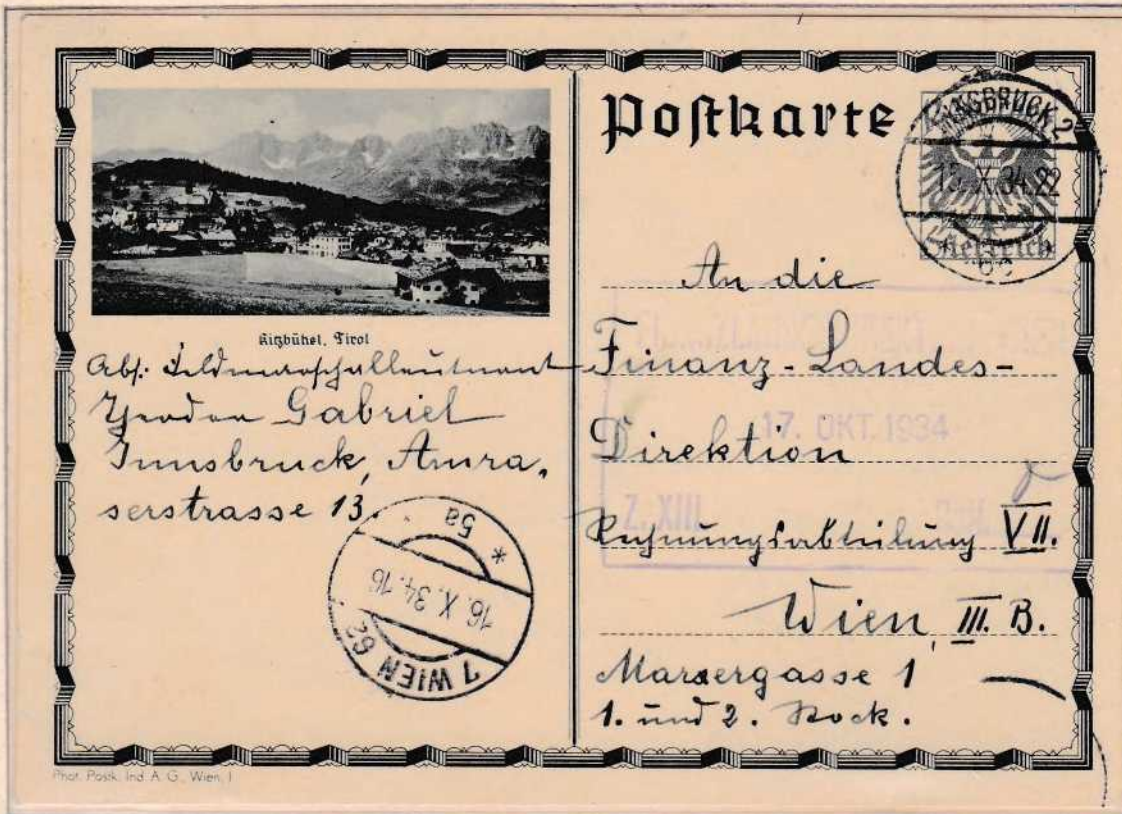 Postkarte
INNSBRUCK 2
X. 34. 22
6c
Oesterreich
Kitzbühel, Tirol
Abs: Feldmarschalleutnant
Theodor Gabriel
Innsbruck, Amra-
serstrasse 13.
An die
Finanz-Landes-
Direktion
Rechnungsabteilung VII.
Wien, III. B.
Marxergasse 1
1. und 2. Stock.
17. OKT. 1934
Z. XIII
7 WIEN 62
16. X. 34. 16
* 5a
Phot. Postk. Ind. A. G., Wien, I